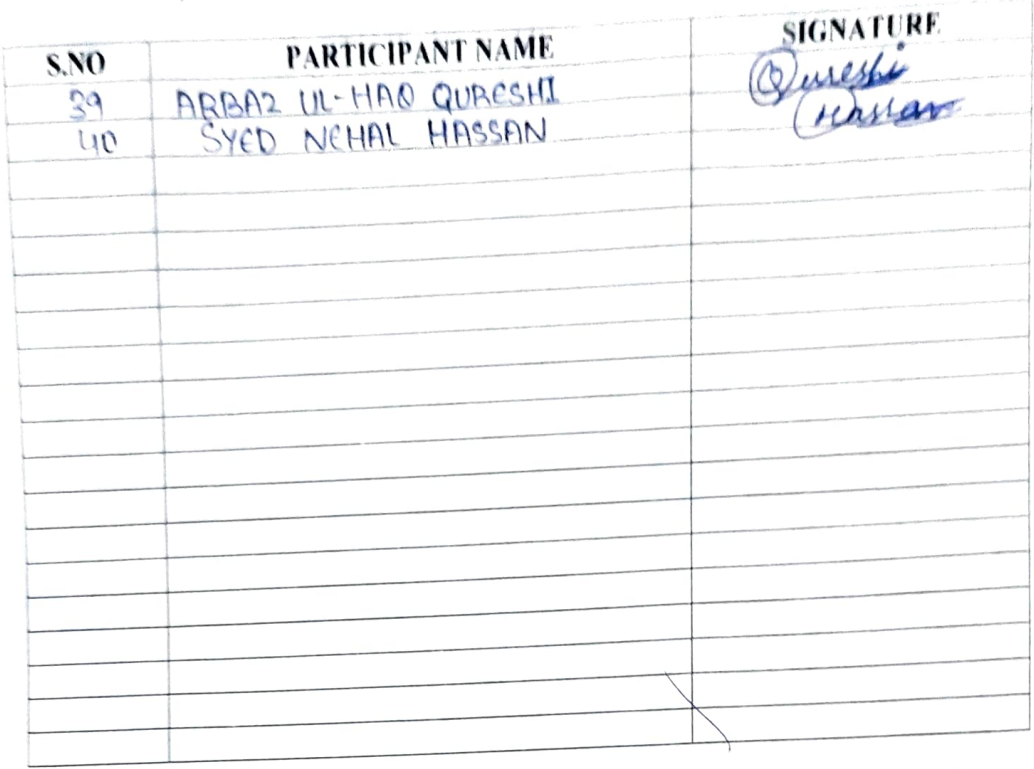 S.NO PARTICIPANT NAME SIGNATURE
39 ARBAZ UL-HAQ QURESHI Qureshi
40 SYED NEHAL HASSAN Hassan